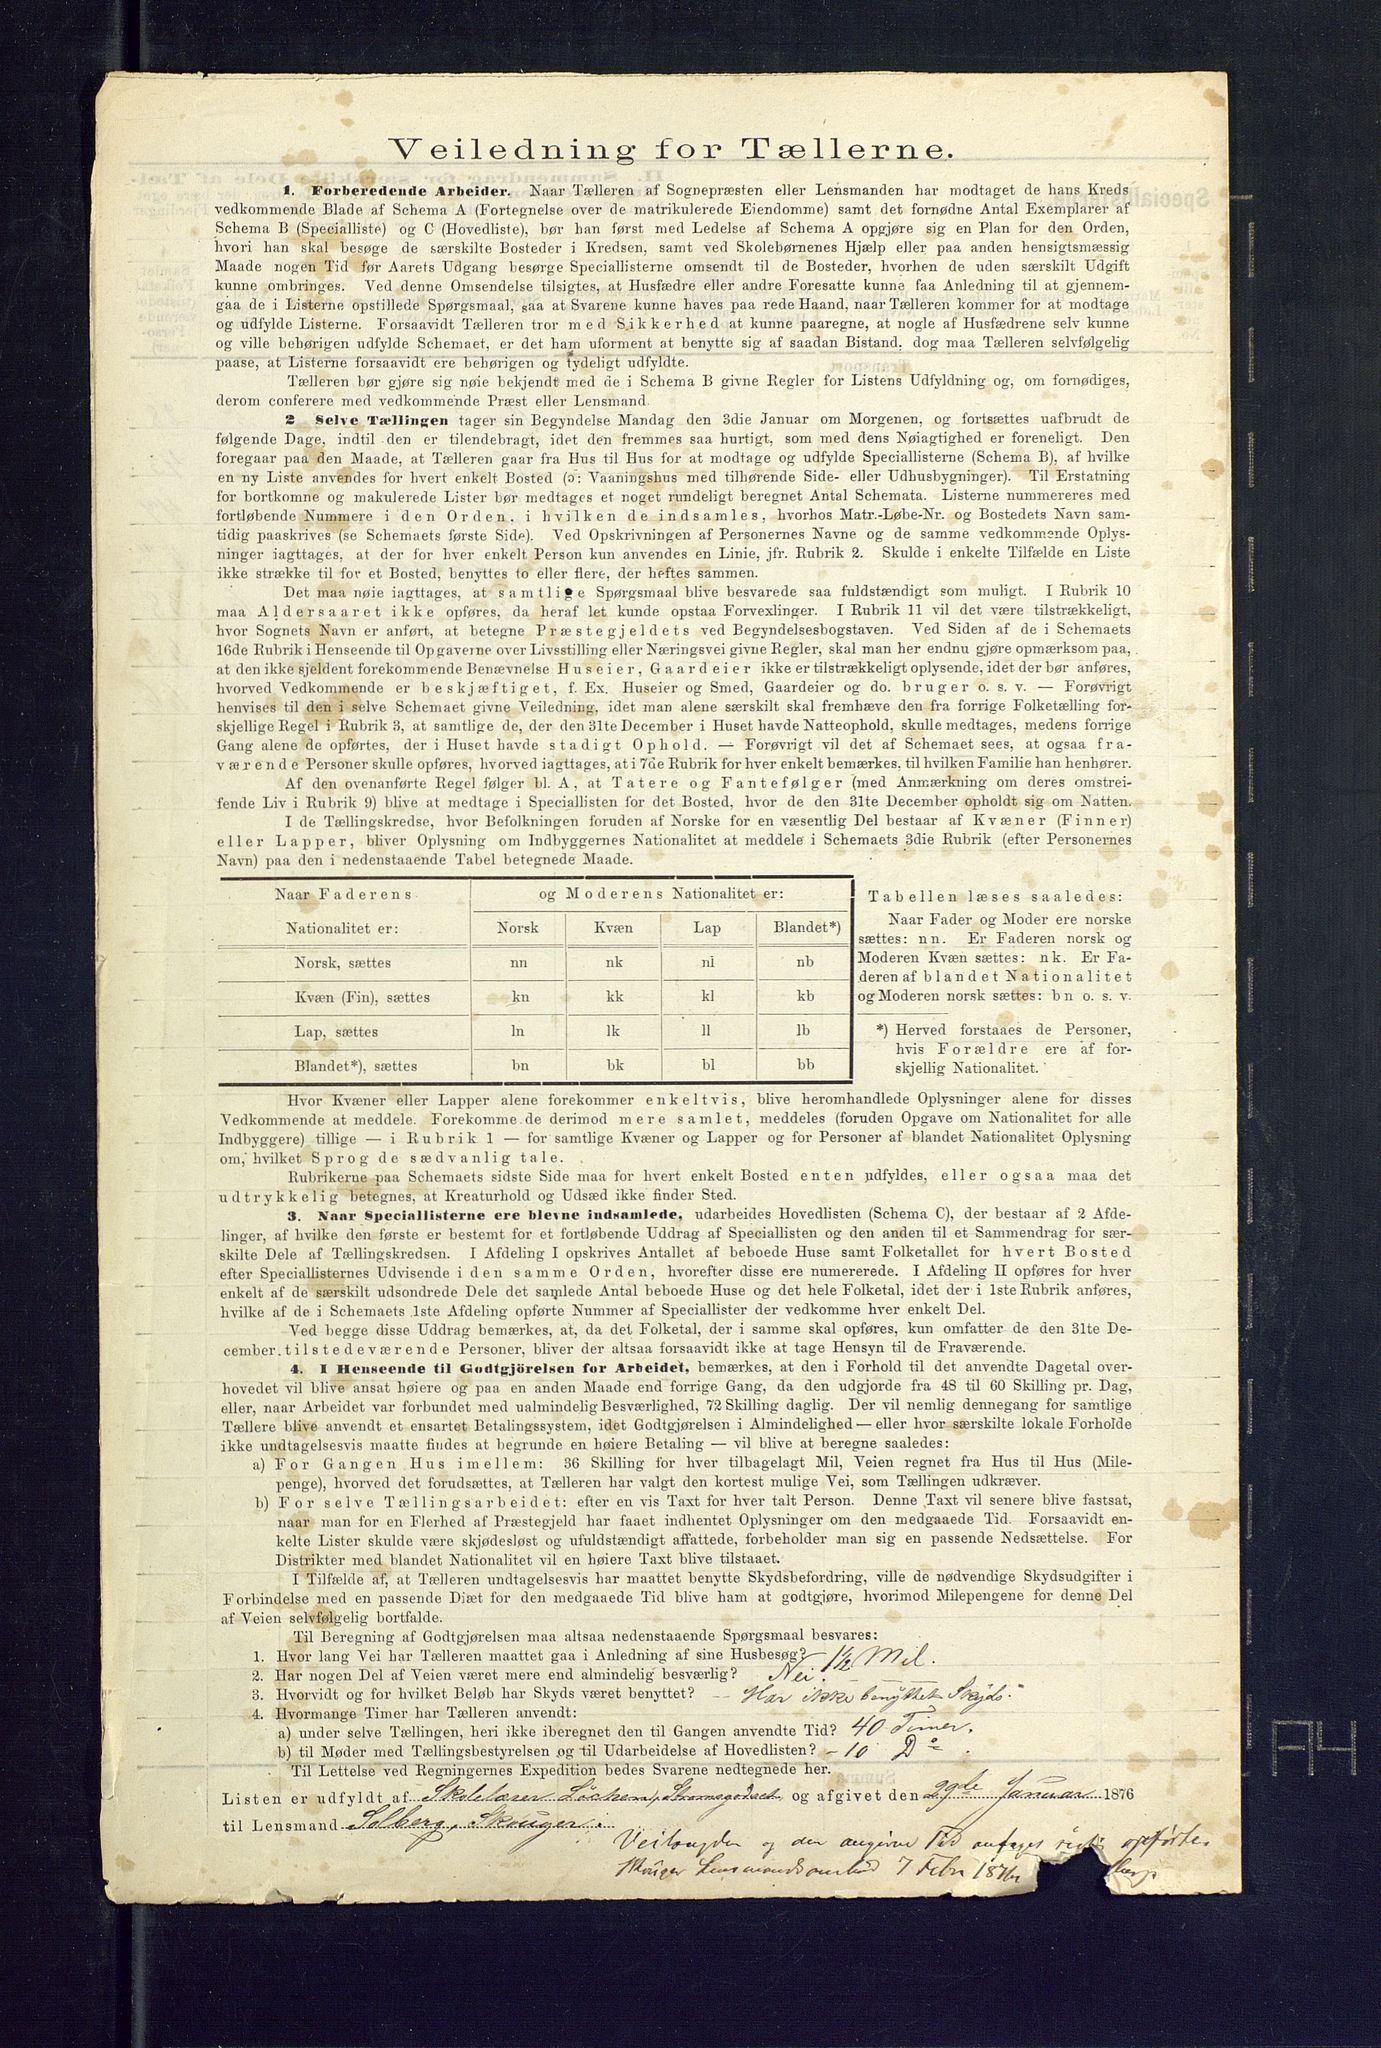 Veiledning for Tællerne.
1. Forberedende Arbeider. Naar Tælleren af Sognepræsten eller Lensmanden har modtaget de hans Kreds
vedkommende Blade af Schema A (Fortegnelse over de matrikulerede Eiendomme) samt det fornødne Antal Exemplarer af
Schema B (Specialliste) og C (Hovedliste), bør han først med Ledelse af Schema A opgjøre sig en Plan for den Orden,
hvori han skal besøge de særskilte Bosteder i Kredsen, samt ved Skolebørnenes Hjælp eller paa anden hensigtsmæssig
Maade nogen Tid før Aarets Udgang besørge Speciallisterne omsendt til de Bosteder, hvorhen de uden særskilt Udgift
kunne ombringes. Ved denne Omsendelse tilsigtes, at Husfædre eller andre Foresatte kunne faa Anledning til at gjennem-
gaa de i Listerne opstillede Spørgsmaal, saa at Svarene kunne haves paa rede Haand, naar Tælleren kommer for at modtage
og udfylde Listerne. Forsaavidt Tælleren tror med Sikkerhed at kunne paaregne, at nogle af Husfædrene selv kunne
og ville behørigen udfylde Schemaet, er det ham uforment at benytte sig af saadan Bistand, dog maa Tælleren selvfølgelig
paase, at Listerne forsaavidt ere behørigen og tydeligt udfyldte.
Tælleren bør gjøre sig nøie bekjendt med de i Schema B givne Regler for Listens Udfyldning og, om fornødiges,
derom conferere med vedkommende Præst eller Lensmand.
2 Selve Tællingen tager sin Begyndelse Mandag den 3die Januar om Morgenen, og fortsættes uafbrudt de
følgende Dage, indtil den er tilendebragt, idet den fremmes saa hurtigt, som med dens Nøiagtighed er foreneligt. Den
foregaar paa den Maade, at Tælleren gaar fra Hus til Hus for at modtage og udfylde Speciallisterne (Schema B), af hvilke
en ny Liste anvendes for hvert enkelt Bosted (ɔ: Vaaningshus med tilhørende Side- eller Udhusbygninger). Til Erstatning
for bortkomne og makulerede Lister bør medtages et noget rundeligt beregnet Antal Schemata. Listerne nummereres med
fortløbende Nummere i den Orden, i hvilken de indsamles, hvorhos Matr.-Løbe-Nr. og Bostedets Navn sam-
tidig paaskrives (se Schemaets første Side). Ved Opskrivningen af Personernes Navne og de samme vedkommende Oplys-
ninger iagttages, at der for hver enkelt Person kun anvendes en Linie, jfr. Rubrik 2. Skulde i enkelte Tilfælde en Liste
ikke strække til for et Bosted, benyttes to eller flere, der heftes sammen.
Det maa nøie iagttages, at samtlige Spørgsmaal blive besvarede saa fuldstændigt som muligt. I Rubrik 10
maa Aldersaaret ikke opføres, da heraf let kunde opstaa Forvexlinger. I Rubrik 11 vil det være tilstrækkeligt,
hvor Sognets Navn er anført, at betegne Præstegjeldets ved Begyndelsesbogstaven. Ved Siden af de i Schemaets
16de Rubrik i Henseende til Opgaverne over Livsstilling eller Næringsvei givne Regler, skal man her endnu gjøre opmærksom paa,
at den ikke sjeldent forekommende Benævnelse Huseier, Gaardeier ikke er tilstrækkeligt oplysende, idet der bør anføres,
hvorved Vedkommende er beskjæftiget, f. Ex. Huseier og Smed, Gaardeier og do. bruger o. s. v. — Forøvrigt
henvises til den i selve Schemaet givne Veiledning, idet man alene særskilt skal fremhæve den fra forrige Folketælling for-
skjellige Regel i Rubrik 3, at samtlige de, der den 31te December i Huset havde Natteophold, skulle medtages, medens forrige
Gang alene de opførtes, der i Huset havde stadigt Ophold. — Forøvrigt vil det af Schemaet sees, at ogsaa fra-
værende Personer skulle opføres, hvorved iagttages, at i 7de Rubrik for hver enkelt bemærkes, til hvilken Familie han henhører.
Af den ovenanførte Regel følger bl. A, at Tatere og Fantefølger (med Anmærkning om deres omstrei-
fende Liv i Rubrik 9) blive at medtage i Speciallisten for det Bosted, hvor de den 31te December opholdt sig om Natten.
I de Tællingskredse, hvor Befolkningen foruden af Norske for en væsentlig Del bestaar af Kvæner (Finner)
eller Lapper, bliver Oplysning om Indbyggernes Nationalitet at meddele i Schemaets 3die Rubrik (efter Personernes
Navn) paa den i nedenstaaende Tabel betegnede Maade.
Naar Faderens og Moderens Nationalitet er:
Nationalitet er: Norsk Kvæn Lap Blandet*)
Norsk, sættes nn nk nl nb
Kvæn (Fin), sættes kn kk kl kb
Lap, sættes ln lk ll lb
Blandet*), sættes bn bk bl bb
Tabellen læses saaledes:
Naar Fader og Moder ere norske
sættes: nn. Er Faderen norsk og
Moderen Kvæn sættes: nk. Er Fa-
deren af blandet Nationalitet
og Moderen norsk sættes: bn o. s. v.
*) Herved forstaaes de Personer,
hvis Forældre ere af for-
skjellig Nationalitet.
Hvor Kvæner eller Lapper alene forekommer enkeltvis, blive heromhandlede Oplysninger alene for disses
Vedkommende at meddele. Forekomme de derimod mere samlet, meddeles (foruden Opgave om Nationalitet for alle
Indbyggere) tillige — i Rubrik 1 — for samtlige Kvæner og Lapper og for Personer af blandet Nationalitet Oplysning
om, hvilket Sprog de sædvanlig tale.
Rubrikerne paa Schemaets sidste Side maa for hvert enkelt Bosted enten udfyldes, eller ogsaa maa det
udtrykkelig betegnes, at Kreaturhold og Udsæd ikke finder Sted.
3. Naar Speciallisterne ere blevne indsamlede, udarbeides Hovedlisten (Schema C), der bestaar af 2 Afde-
linger, af hvilke den første er bestemt for et fortløbende Uddrag af Speciallisten og den anden til et Sammendrag for sær-
skilte Dele af Tællingskredsen. I Afdeling I opskrives Antallet af beboede Huse samt Folketallet for hvert Bosted
efter Speciallisternes Udvisende i den samme Orden, hvorefter disse ere numererede. I Afdeling II opføres for hver
enkelt af de særskilt udsondrede Dele det samlede Antal beboede Huse og det hele Folketal, idet der i 1ste Rubrik anføres,
hvilke af de i Schemaets 1ste Afdeling opførte Nummer af Speciallister der vedkomme hver enkelt Del.
Ved begge disse Uddrag bemærkes, at, da det Folketal, der i samme skal opføres, kun omfatter de den 31te De-
cember tilstedeværende Personer, bliver der altsaa forsaavidt ikke at tage Hensyn til de Fraværende.
4. I Henseende til Godtgjörelsen for Arbeidet, bemærkes, at den i Forhold til det anvendte Dagetal over-
hovedet vil blive ansat høiere og paa en anden Maade end forrige Gang, da den udgjorde fra 48 til 60 Skilling pr. Dag,
eller, naar Arbeidet var forbundet med ualmindelig Besværlighed, 72 Skilling daglig. Der vil nemlig dennegang for samtlige
Tællere blive anvendt et ensartet Betalingssystem, idet Godtgjørelsen i Almindelighed — eller hvor særskilte lokale Forholde
ikke undtagelsesvis maatte findes at begrunde en høiere Betaling — vil blive at beregne saaledes:
a) For Gangen Hus imellem: 36 Skilling for hver tilbagelagt Mil, Veien regnet fra Hus til Hus (Mile-
penge), hvorved det forudsættes, at Tælleren har valgt den kortest mulige Vei, som Tællingen udkræver.
b) For selve Tællingsarbeidet: efter en vis Taxt for hver talt Person. Denne Taxt vil senere blive fastsat,
naar man for en Flerhed af Præstegjeld har faaet indhentet Oplysninger om den medgaaede Tid. Forsaavidt en-
kelte Lister skulde være skjødesløst og ufuldstændigt affattede, forbeholder man sig en passende Nedsættelse. For
Distrikter med blandet Nationalitet vil en høiere Taxt blive tilstaaet.
I Tilfælde af, at Tælleren undtagelsesvis har maattet benytte Skydsbefordring, ville de nødvendige Skydsudgifter i
Forbindelse med en passende Diæt for den medgaaede Tid blive ham at godtgjøre, hvorimod Milepengene for denne Del
af Veien selvfølgelig bortfalde.
Til Beregning af Godtgjørelsen maa altsaa nedenstaaende Spørgsmaal besvares:
1. Hvor lang Vei har Tælleren maattet gaa i Anledning af sine Husbesøg? 1½ Mil.
2. Har nogen Del af Veien været mere end almindelig besværlig? Nei.
3. Hvorvidt og for hvilket Beløb har Skyds været benyttet? — Har ikke benyttet Skyds.
4. Hvormange Timer har Tælleren anvendt:
a) under selve Tællingen, heri ikke iberegnet den til Gangen anvendte Tid? 40 Timer.
b) til Møder med Tællingsbestyrelsen og til Udarbeidelse af Hovedlisten? — 10 Do.
Til Lettelse ved Regningernes Expedition bedes Svarene nedtegnede her.
Listen er udfyldt af Skolelærer Löchen, Strømsgodset, og afgivet den 29de Januar 1876
til Lensmand Solberg, Skouger.
Veilengden og den angivne Tid antages rigtig opførte.
Skouger Lensmandsombud 7 Febr 1876